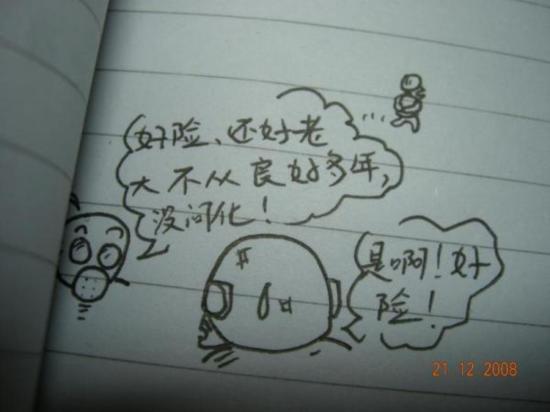 好险、还好老
大不从良好多年,
没问化!
是啊!好
险!
21 12 2008